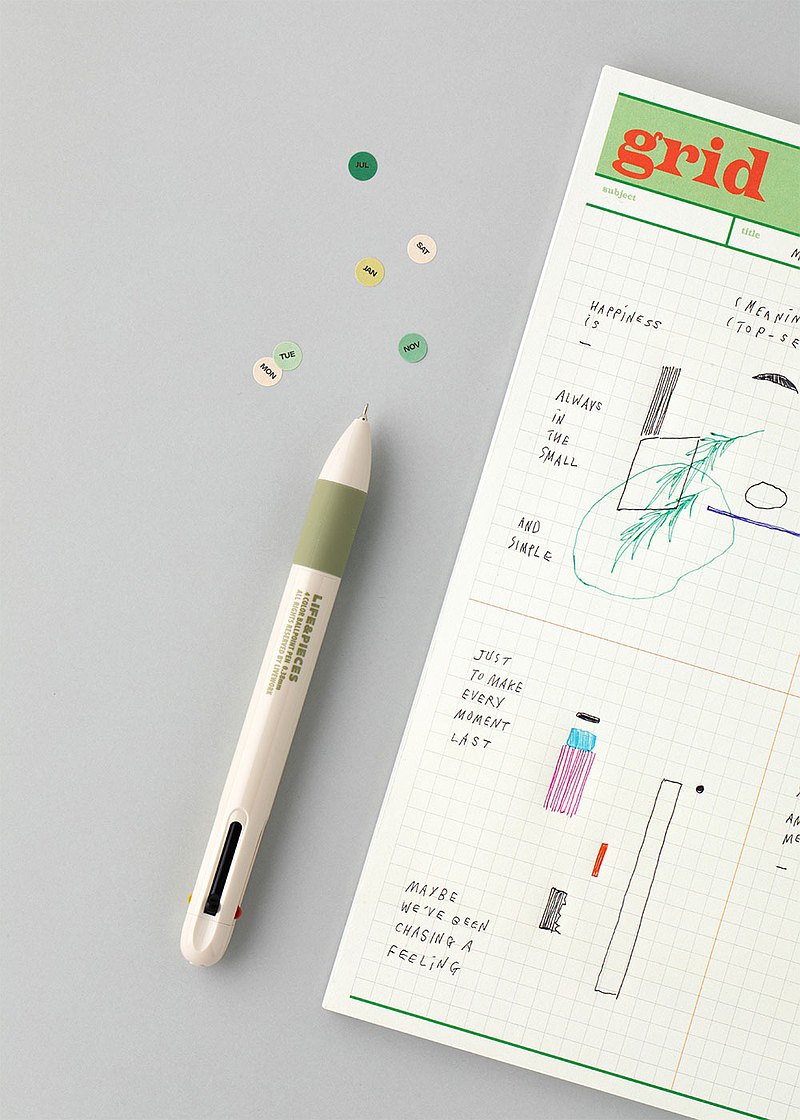 JUL
SAT
JAN
NOV
TUE
MON
LIFE&PIECES
4 COLOR BALLPOINT PEN 0.38mm
ALL RIGHTS RESERVED BY LIVEWORK
grid
subject
title
HAPPINESS
IS
ALWAYS
IN
THE
SMALL
AND
SIMPLE
JUST
TO MAKE
EVERY
MOMENT
LAST
MAYBE
WE'VE BEEN
CHASING A
FEELING